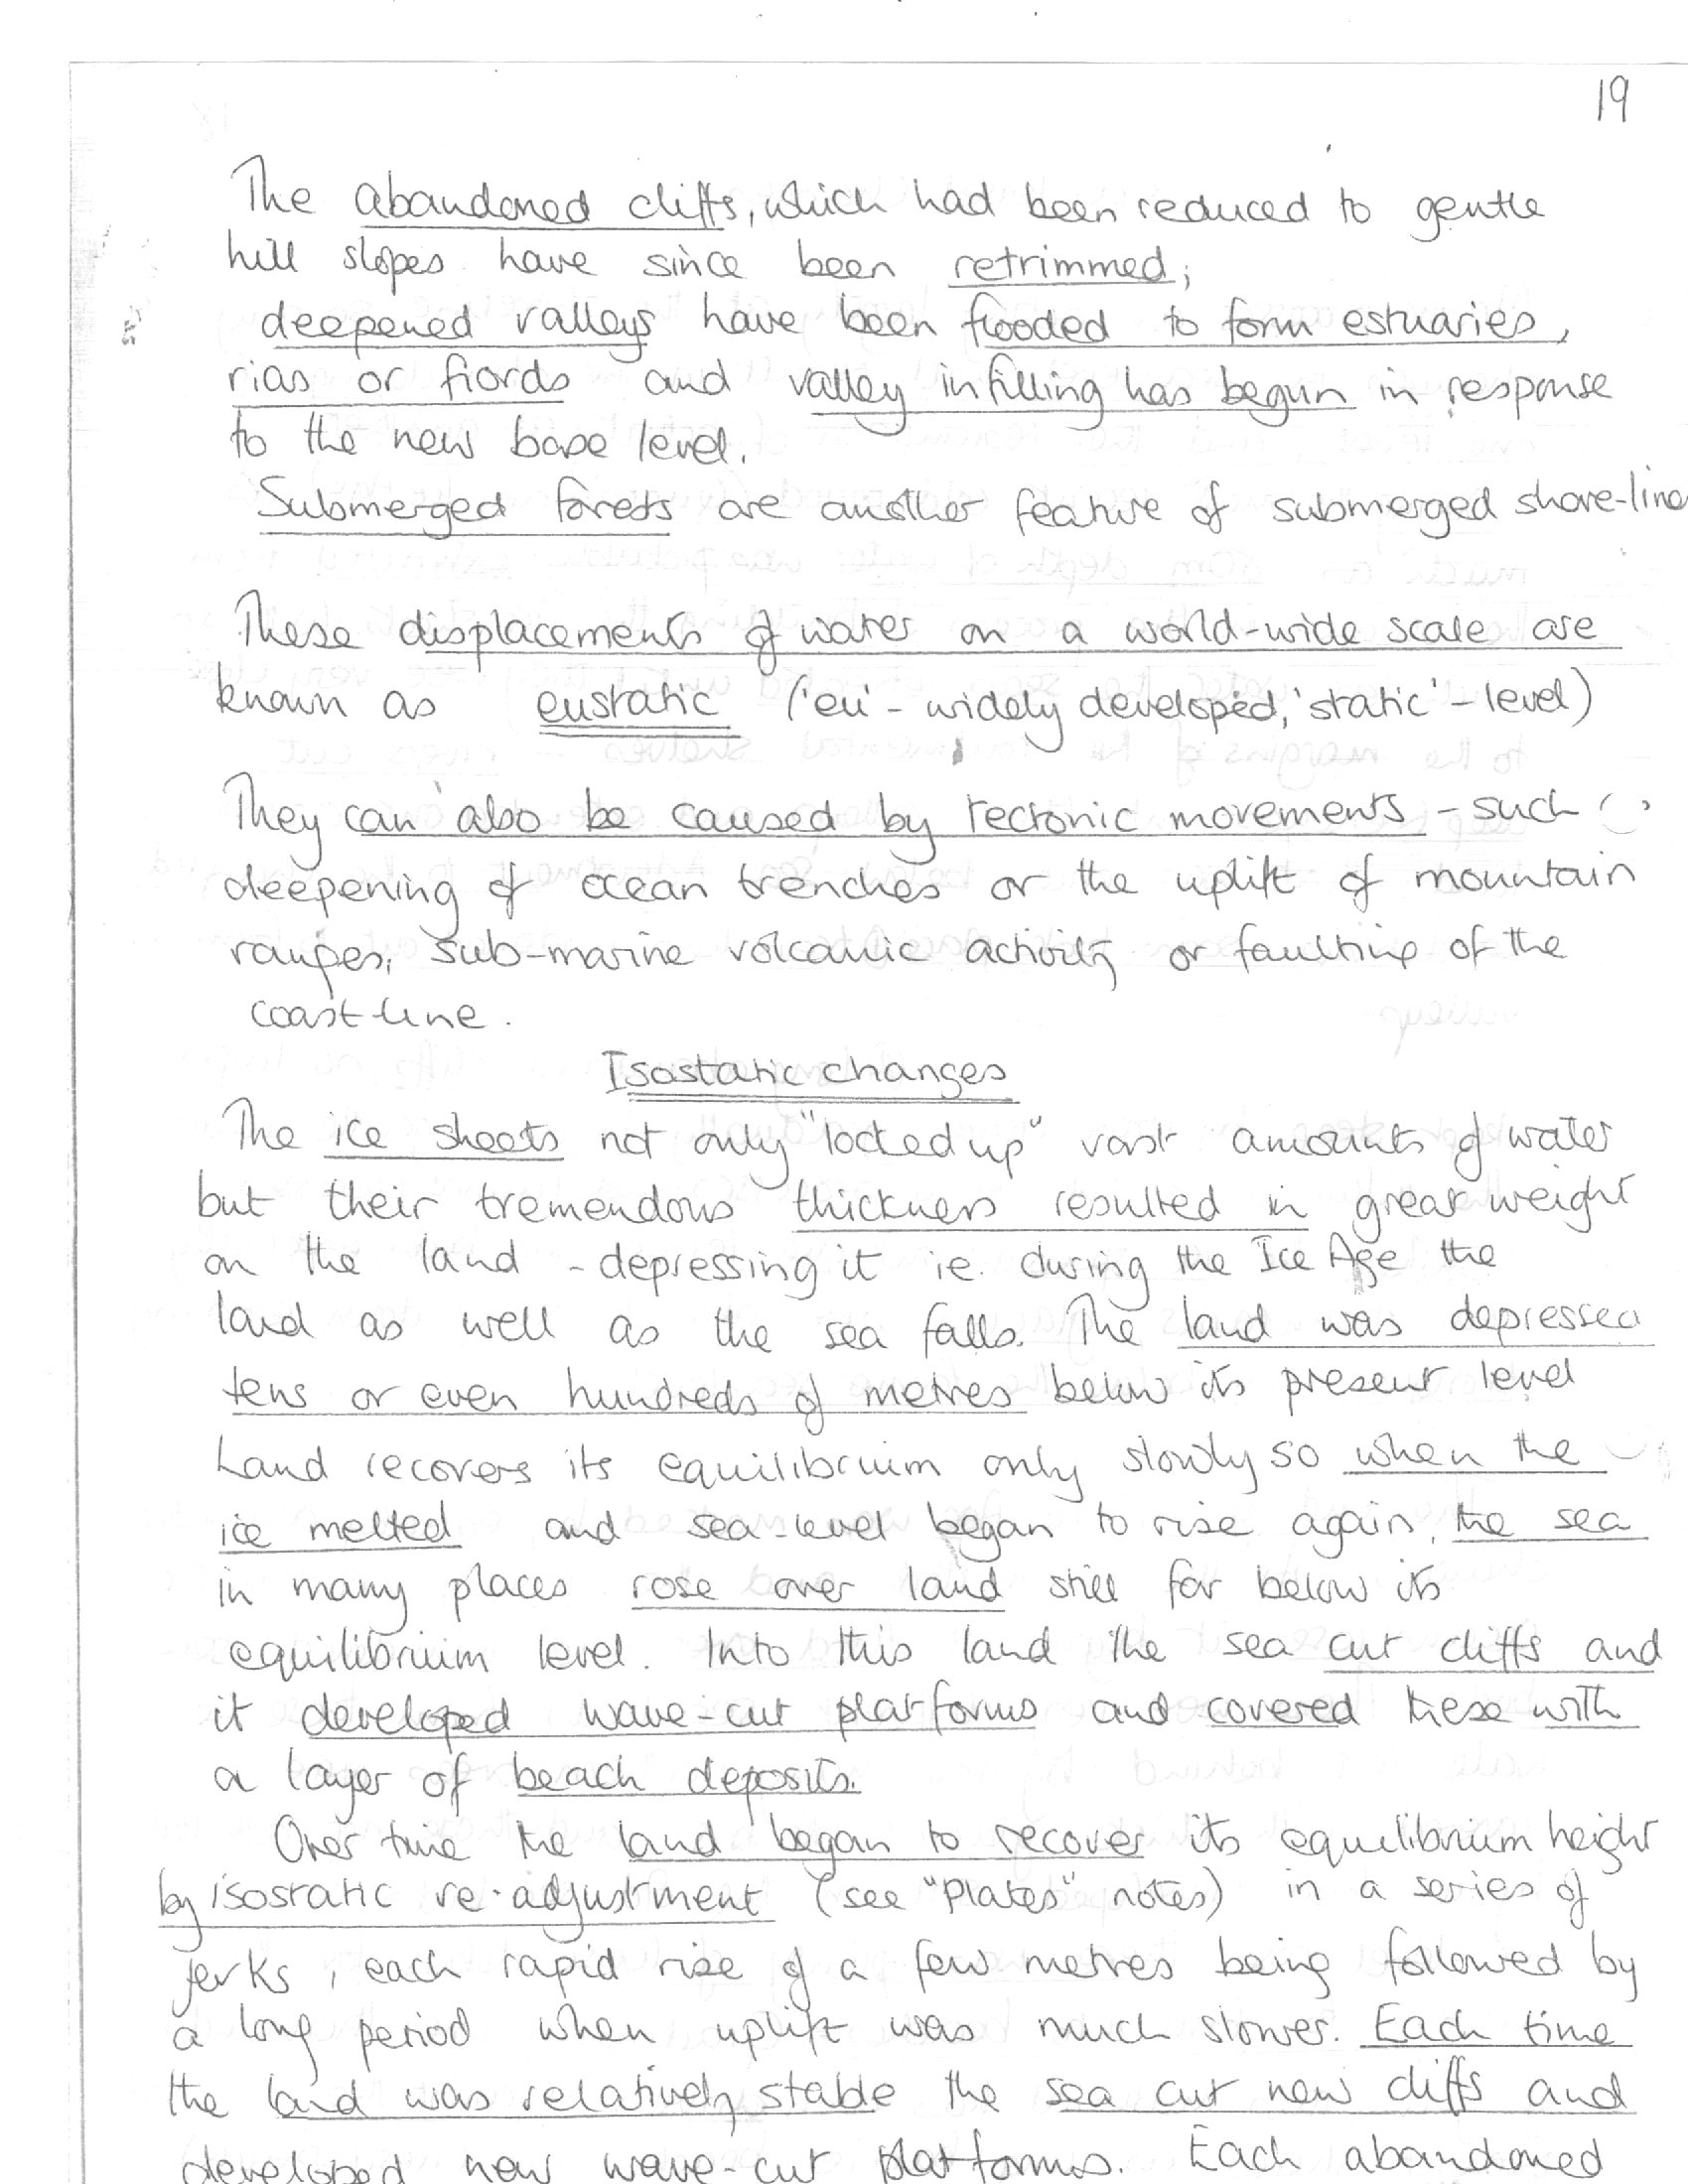 19
The abandoned cliffs, which had been reduced to gentle
hill slopes have since been retrimmed;
deepened valleys have been flooded to form estuaries,
rias or fiords and valley infilling has begun in response
to the new base level.
Submerged forests are another feature of submerged shore-line
These displacements of water on a world-wide scale are
known as eustatic ('eu' - widely developed, 'static' - level)
They can also be caused by tectonic movements - such
deepening of ocean trenches or the uplift of mountain
ranges, sub-marine volcanic activity or faulting of the
coast-line.
Isostatic changes
The ice sheets not only "locked up" vast amounts of water
but their tremendous thickness resulted in great weight
on the land - depressing it ie. during the Ice Age the
land as well as the sea falls. The land was depressed
tens or even hundreds of metres below its present level
Land recovers its equilibrium only slowly so when the
ice melted and sea-level began to rise again, the sea
in many places rose over land still far below its
equilibrium level. Into this land the sea cut cliffs and
it developed wave-cut platforms and covered these with
a layer of beach deposits.
Over time the land began to recover its equilibrium height
by isostatic re-adjustment (see "Plates" notes) in a series of
jerks, each rapid rise of a few metres being followed by
a long period when uplift was much slower. Each time
the land was relatively stable the sea cut new cliffs and
developed new wave-cut platforms. Each abandoned